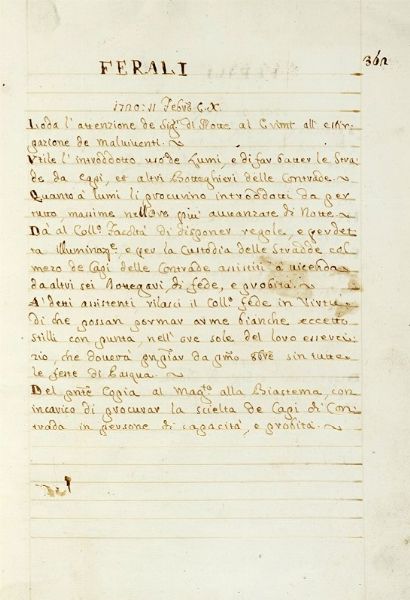 362
FERALI
1720: 11 Febro C.X.
Loda l'attenzione de Sigri di Notte al Criml all' estir-
pazione de malviventi.
Vtile l'introddotto uso de Lumi, e di far batter le Stra-
de da Capi, et altri Botteghieri delle Contrade.
Quanto à lumi si procurino introddotti da per
tutto, massime nell'ore più auuanzate di Notte
Dà al Collo Facoltà di disponer regole, e perdet-
ta Illuminazne, e per la Custodia delle Stradde col
mezo de Capi delle Contrade assistiti à uicenda
da altri sei Bottegari, di fede, e probità.
A' detti asistenti rilasci il Collo fede in Virtù
di che possan portar arme bianche eccetto
Stilli con punta, nell' ore sole del loro esserci-
zio, che douerà prinzipiar da pmo 8bre sin tutte
le feste di Pasqua.
Del pnte Copia al Magto alla Biastema, con
incarico di procurar la scielta de Capi di Con-
trada in persone di capacità, e probità.